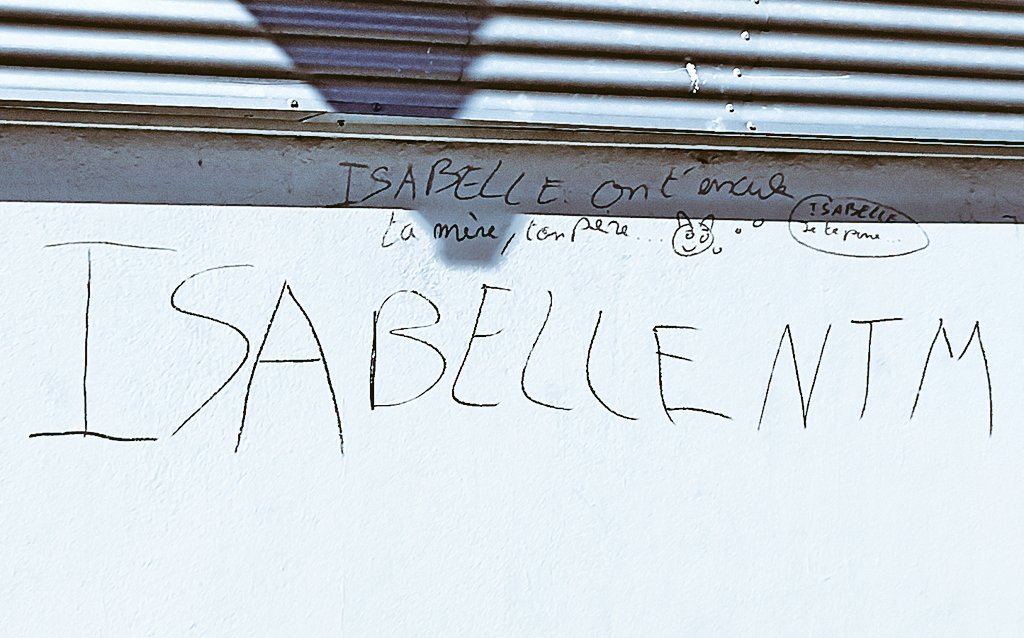 ISABELLE on t'encule
ta mère, ton père...
ISABELLE
Je te pine...
ISABELLE NTM